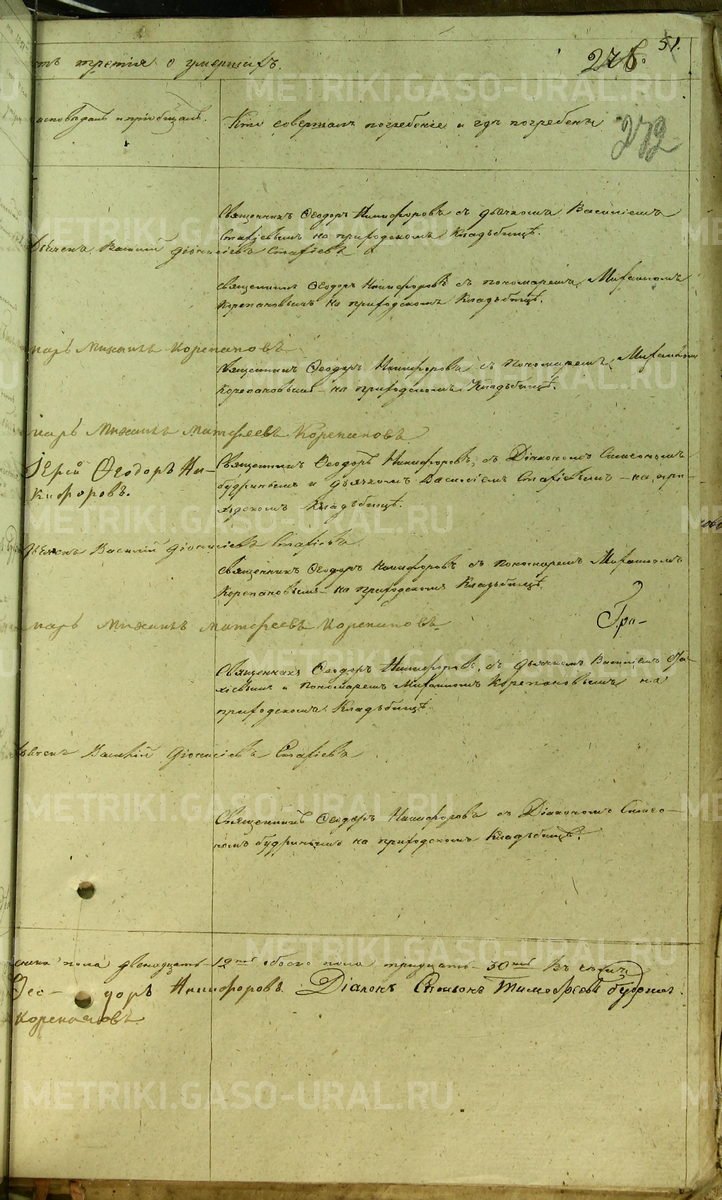 51.
сть третія о умершихъ.
276.
исповѣдалъ и пріобщалъ.
Кто совершалъ погребеніе и гдѣ погребены
272
Священникъ Ѳеодоръ Никифоровъ съ дьячкомъ Василіемъ
на приходскомъ кладбищѣ.
Василій Діонисіевъ
Священникъ Ѳеодоръ Никифоровъ съ пономаремъ Михаиломъ
Корепановымъ на приходскомъ кладбищѣ.
марь Михаилъ Корепановъ
Священникъ Ѳеодоръ Никифоровъ съ Пономаремъ Михаиломъ
Корепановымъ на приходскомъ кладбищѣ.
марь Михаилъ Матфеевъ Корепановъ
Іерей Ѳеодоръ Ни-
кифоровъ.
Священникъ Ѳеодоръ Никифоровъ, съ Діакономъ Симеономъ
Будринымъ и дьячкомъ Василіемъ на при-
ходскомъ кладбищѣ.
Василій Діонисіевъ
Священникъ Ѳеодоръ Никифоровъ съ Пономаремъ Михаиломъ
Корепановымъ на приходскомъ кладбищѣ
марь Михаилъ Матфеевъ Корепановъ
Гри-
Священникъ Ѳеодоръ Никифоровъ, съ дьячкомъ Василіемъ
и Пономаремъ Михаиломъ Корепановымъ на
приходскомъ кладбищѣ.
Василій Діонисіевъ
Священникъ Ѳеодоръ Никифоровъ съ Діакономъ Симео-
номъ Будринымъ на приходскомъ кладбищѣ.
пола двенадцать 12 обоего пола тридцать 30
доръ Никифоровъ. Діаконъ Симеонъ Тимофеевъ Будринъ.
Корепановъ
METRIKI.GASO-URAL.RU